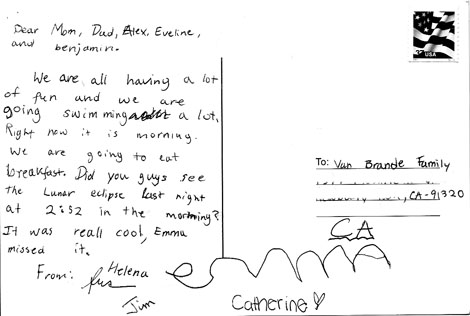 Dear Mom, Dad, Alex, Eveline,
and benjamin.
We are all having a lot
of fun and we are
going swimming a lot.
Right now it is morning.
We are going to eat
breakfast. Did you guys see
the Lunar eclipse Last night
at 2:52 in the morning?
It was reall cool, Emma
missed it.
From: Helena
Jim
emma
Catherine
USA
To: Van Brande Family
CA-91320
CA